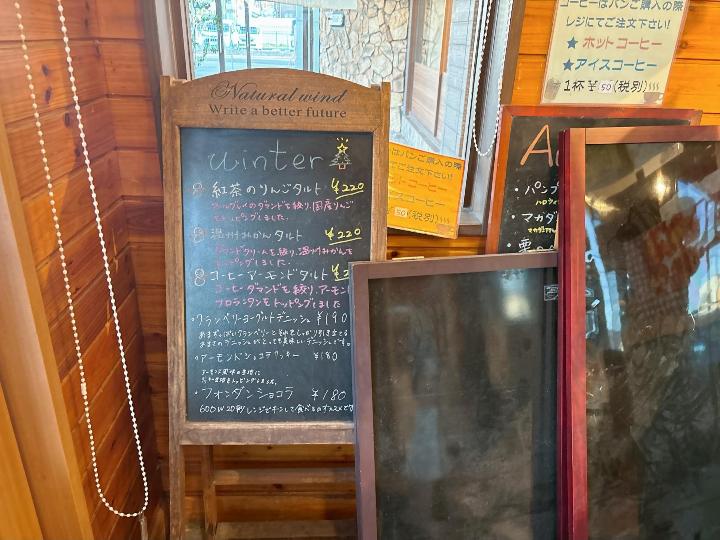 コーヒーはパンご購入の際
レジにてご注文下さい!
★ ホットコーヒー
★ アイスコーヒー
1杯 ¥50(税別)
Natural wind
Write a better future
winter
紅茶のりんごタルト ¥220
を絞り、国産りんご
をトッピングしました。
温州みかんタルト ¥220
を絞り、温州みかんを
トッピングしました。
コーヒーアーモンドタルト ¥2
コーヒーダマンドを絞り、アーモン
フロランタンをトッピングしました
・クランベリーヨーグルトデニッシュ ¥190
あまずっぱいクランベリーと
あまさのデニッシュがとっても美味しいデニッシュです。
・アーモンドショコラクッキー ¥180
・フォンダンショコラ ¥180
600W 20秒 レンジでチンして食べるのオススメです
はパンご購入の際
てご注文下さい!
ットコーヒー
イスコーヒー
50(税別)
A
・パンプ
ハロウィ
・マカダ
マカダ
・栗の